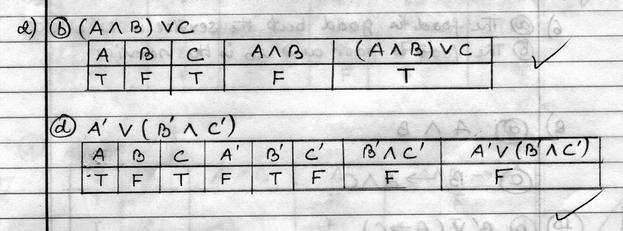 2) (b) (A ∧ B) ∨ C
A B C A∧B (A∧B)∨C
T F T F T
(d) A′ ∨ (B′ ∧ C′)
A B C A′ B′ C′ B′∧C′ A′∨(B′∧C′)
T F T F T F F F